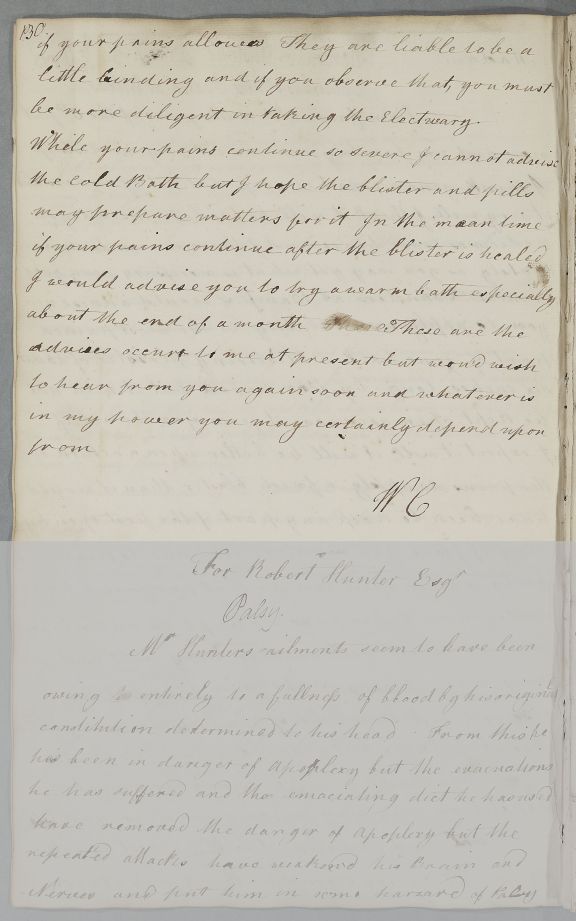 130
if your pains allowes They are liable to be a
little binding and if you observe that, you must
be more diligent in taking the Electuary.
While your pains continue so severe I cannot advise
the cold Bath but I hope the blister and pills
may prepare matters for it In the mean time
if your pains continue after the blister is healed
I would advise you to try a warm bath especially
about the end of a month These are the
advices occurr to me at present but woud wish
to hear from you again soon and whatever is
in my power you may certainly depend upon
from
W C
For Robert Hunter Esqr
Palsy.
Mr Hunters ailments seem to have been
owing entirely to a fullness of blood by his original
constitution determined to his head. From this he
has been in danger of Apoplexy but the evacuations
he has suffered and the emaciating diet he has used
have removed the danger of Apoplexy but the
repeated attacks have weakend his Brain and
Nerves and put him in some hazard of Palsy